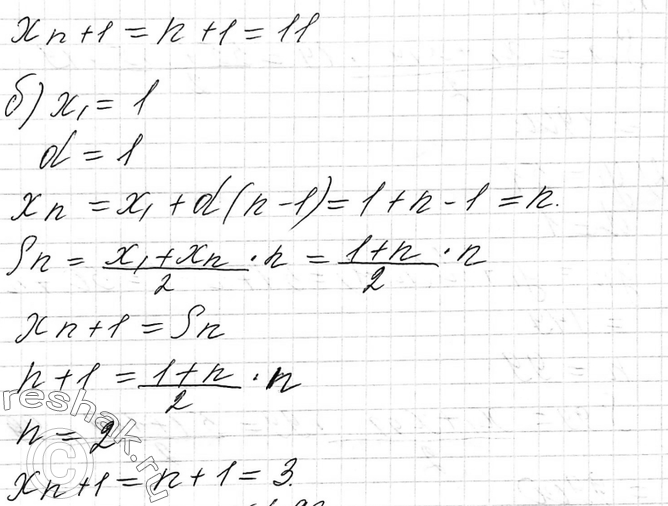 xn+1 = n+1 = 11
б) x₁ = 1
d = 1
xn = x₁ + d(n-1) = 1+n-1 = n.
Sn = (x₁+xn)/2 · n = (1+n)/2 · n
xn+1 = Sn
n+1 = (1+n)/2 · n
n = 2
xn+1 = n+1 = 3.
reshak.ru